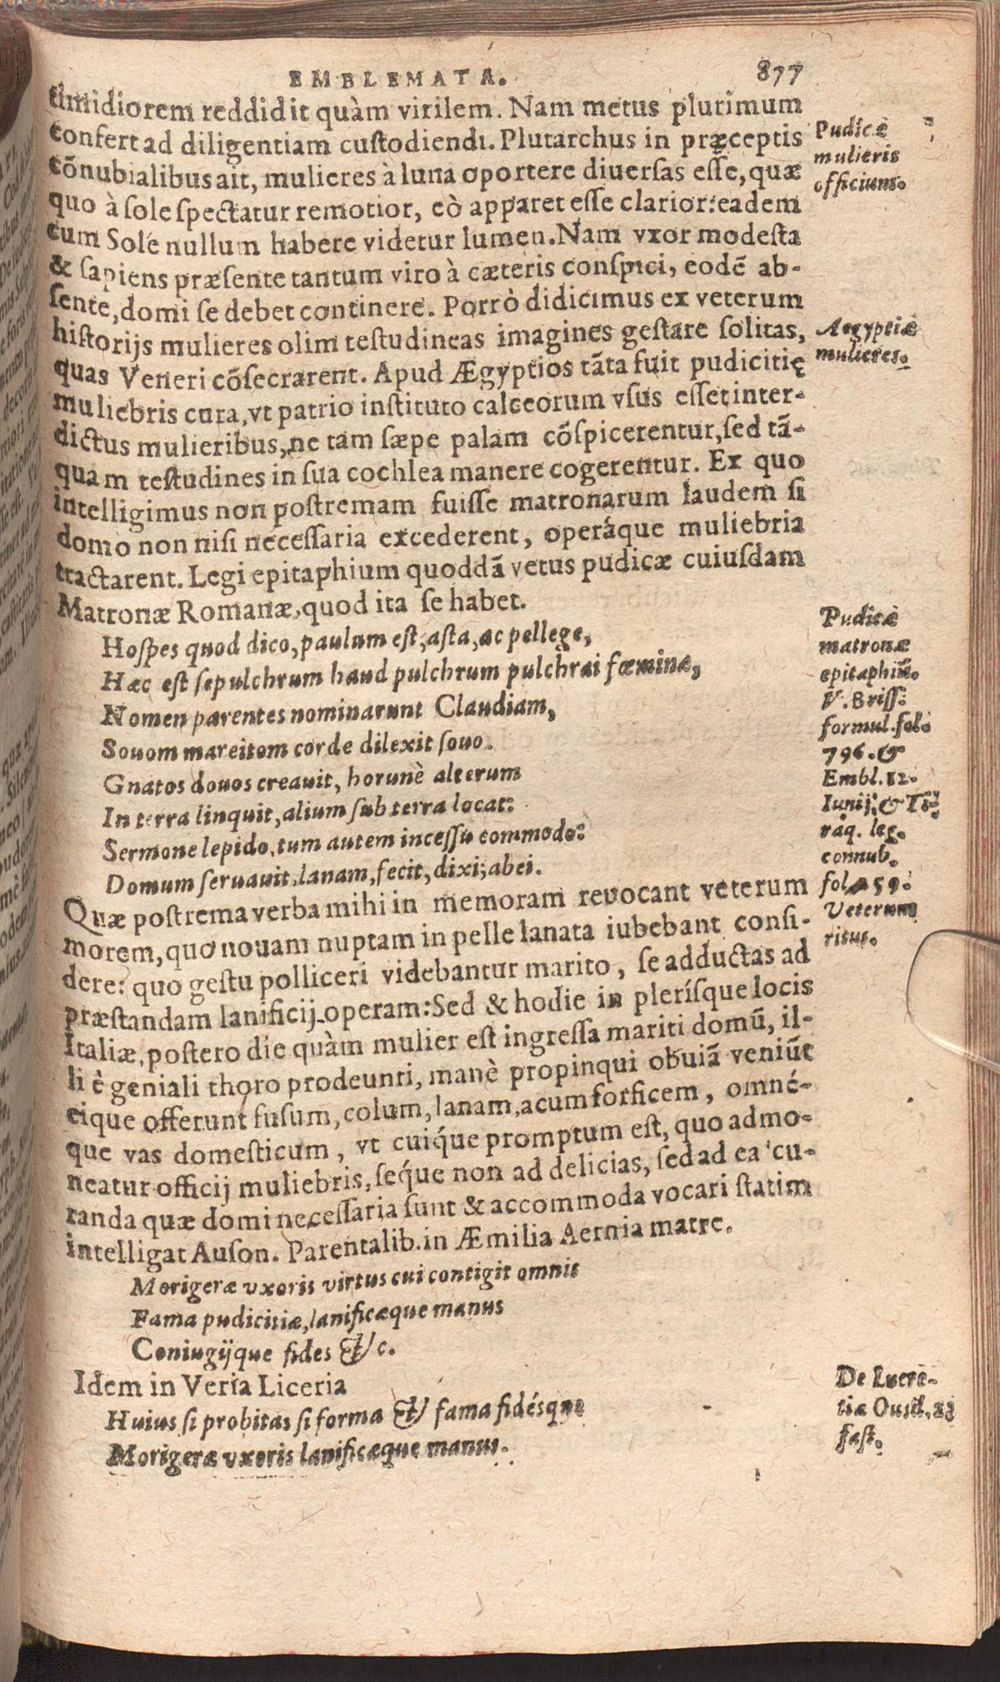 EMBLEMATA. 877
timidiorem reddidit quàm virilem. Nam metus plurimum
confert ad diligentiam custodiendi. Plutarchus in præceptis
cõnubialibus ait, mulieres à luna oportere diuersas esse, quæ
quo à sole spectatur remotior, eò apparet esse clarior: eadem
cum Sole nullum habere videtur lumen. Nam vxor modesta
& sapiens præsente tantum viro à cæteris conspici, eodẽ ab-
sente, domi se debet continere. Porrò didicimus ex veterum
historijs mulieres olim testudineas imagines gestare solitas,
quas Veneri cõsecrarent. Apud Ægyptios tãta fuit pudicitię
muliebris cura, vt patrio instituto calceorum vsus esset inter-
dictus mulieribus, ne tam sæpe palam cõspicerentur, sed tã-
quam testudines in sua cochlea manere cogerentur. Ex quo
intelligimus non postremam fuisse matronarum laudem si
domo non nisi necessaria excederent, operáque muliebria
tractarent. Legi epitaphium quoddã vetus pudicæ cuiusdam
Matronæ Romanæ, quod ita se habet.
Hospes quod dico, paulum est, asta, ac pellege,
Hæc est sepulchrum haud pulchrum pulchrai fœminæ,
Nomen parentes nominarunt Claudiam,
Souom mareitom corde dilexit souo.
Gnatos douos creauit, horunè alterum
In terra linquit, alium sub terra locat:
Sermone lepido, tum autem incessu commodo:
Domum seruauit, lanam, fecit, dixi; abei.
Quæ postrema verba mihi in memoram reuocant veterum
morem, quo nouam nuptam in pelle lanata iubebant consi-
dere: quo gestu polliceri videbantur marito, se adductas ad
præstandam lanificij operam: Sed & hodie in plerísque locis
Italiæ, postero die quàm mulier est ingressa mariti domũ, il-
li è geniali thoro prodeunti, manè propinqui obuiã veniũt
eique offerunt fusum, colum, lanam, acum forficem, omné-
que vas domesticum, vt cuiq́ue promptum est, quo admo-
neatur officij muliebris, seq́ue non ad delicias, sed ad ea cu-
randa quæ domi necessaria sunt & accommoda vocari statim
intelligat Auson. Parentalib. in Æmilia Aernia matre.
Morigeræ vxoris virtus cui contigit omnis
Fama pudicitiæ, lanificæque manus
Coniugijque fides & c.
Idem in Veria Liceria
Huius si probitas si forma & fama fidésque
Morigeræ vxoris lanificæque manus.
Pudicæ
mulieris
officium.
Aegyptiæ
mulieres.
Pudicæ
matronæ
epitaphiũ.
V. Briss.
formul. fol.
796. &
Embl. 12.
Iunij, & Ti-
raq. leg.
connub.
fol. 59.
Veterum
ritus.
De Lucre-
tiæ Ouid. 2
fast.